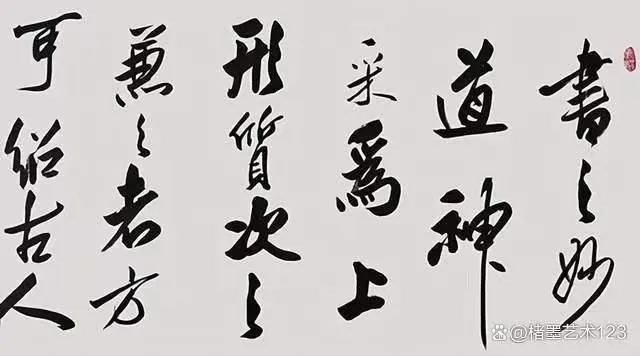 書之妙
道神
采為上
形質次之
兼之者方
可紹古人
@楮墨艺术123